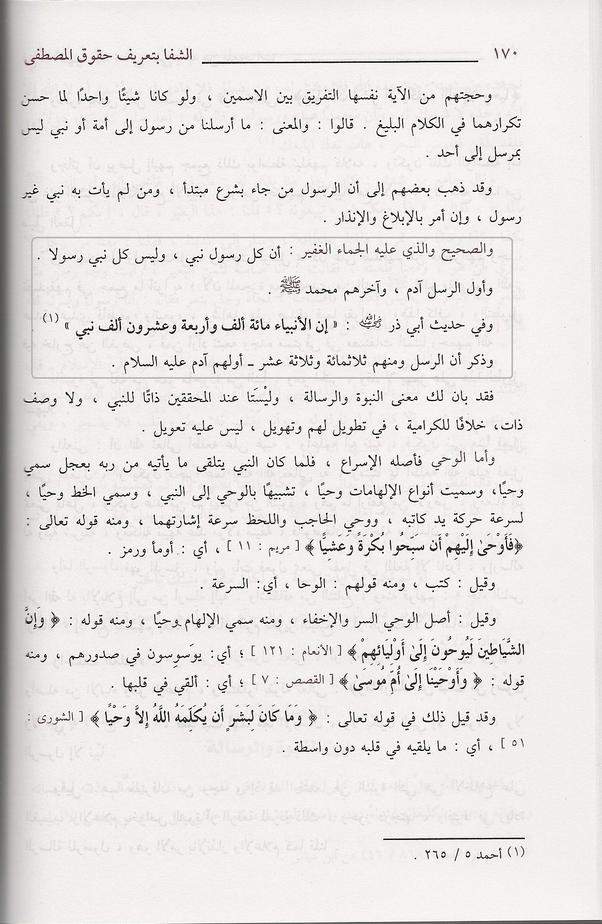 ١٧٠ الشفا بتعريف حقوق المصطفى
وحجتهم من الآية نفسها التفريق بين الاسمين ، ولو كانا شيئًا واحدًا لما حسن
تكرارهما في الكلام البليغ . قالوا : والمعنى : ما أرسلنا من رسول إلى أمة أو نبي ليس
بمرسل إلى أحد .
وقد ذهب بعضهم إلى أن الرسول من جاء بشرع مبتدأ ، ومن لم يأت به نبي غير
رسول ، وإن أمر بالإبلاغ والإنذار .
والصحيح والذي عليه الجماء الغفير : أن كل رسول نبي ، وليس كل نبي رسولا .
وأول الرسل آدم ، وآخرهم محمد ﷺ .
وفي حديث أبي ذر رضي الله عنه : « إن الأنبياء مائة ألف وأربعة وعشرون ألف نبي » (١)
وذكر أن الرسل ومنهم ثلاثمائة وثلاثة عشر ـ أولهم آدم عليه السلام .
فقد بان لك معنى النبوة والرسالة ، وليْستَا عند المحققين ذاتًا للنبي ، ولا وصف
ذات، خلافًا للكرامية ، في تطويل لهم وتهويل ، ليس عليه تعويل .
وأما الوحي فأصله الإسراع ، فلما كان النبي يتلقى ما يأتيه من ربه بعجل سمي
وحيًا، وسميت أنواع الإلهامات وحيًا ، تشبيهًا بالوحي إلى النبي ، وسمي الخط وحيًا ،
لسرعة حركة يد كاتبه ، ووحي الحاجب واللحظ سرعة إشارتهما ، ومنه قوله تعالى :
﴿فَأَوْحَىٰ إِلَيْهِمْ أَن سَبِّحُوا بُكْرَةً وَعَشِيًّا ﴾ [ مريم : ١١ ] ، أي : أومأ ورمز .
وقيل : كتب ، ومنه قولهم : الوحا ، أي: السرعة .
وقيل : أصل الوحي السر والإخفاء ، ومنه سمي الإلهام وحيًا ، ومنه قوله : ﴿ وَإِنَّ
الشَّيَاطِينَ لَيُوحُونَ إِلَىٰ أَوْلِيَائِهِمْ ﴾ [ الأنعام : ١٢١ ] ؛ أي: يوَسوِسون في صدورهم ، ومنه
قوله : ﴿ وَأَوْحَيْنَا إِلَىٰ أُمِّ مُوسَىٰ ﴾ [ القصص : ٧ ] ؛ أي : ألقي في قلبها .
وقد قيل ذلك في قوله تعالى : ﴿ وَمَا كَانَ لِبَشَرٍ أَن يُكَلِّمَهُ اللَّهُ إِلاَّ وَحْيًا ﴾ [ الشورى :
٥١ ] ، أي : ما يلقيه في قلبه دون واسطة .
(١) أحمد ٥ / ٢٦٥ .